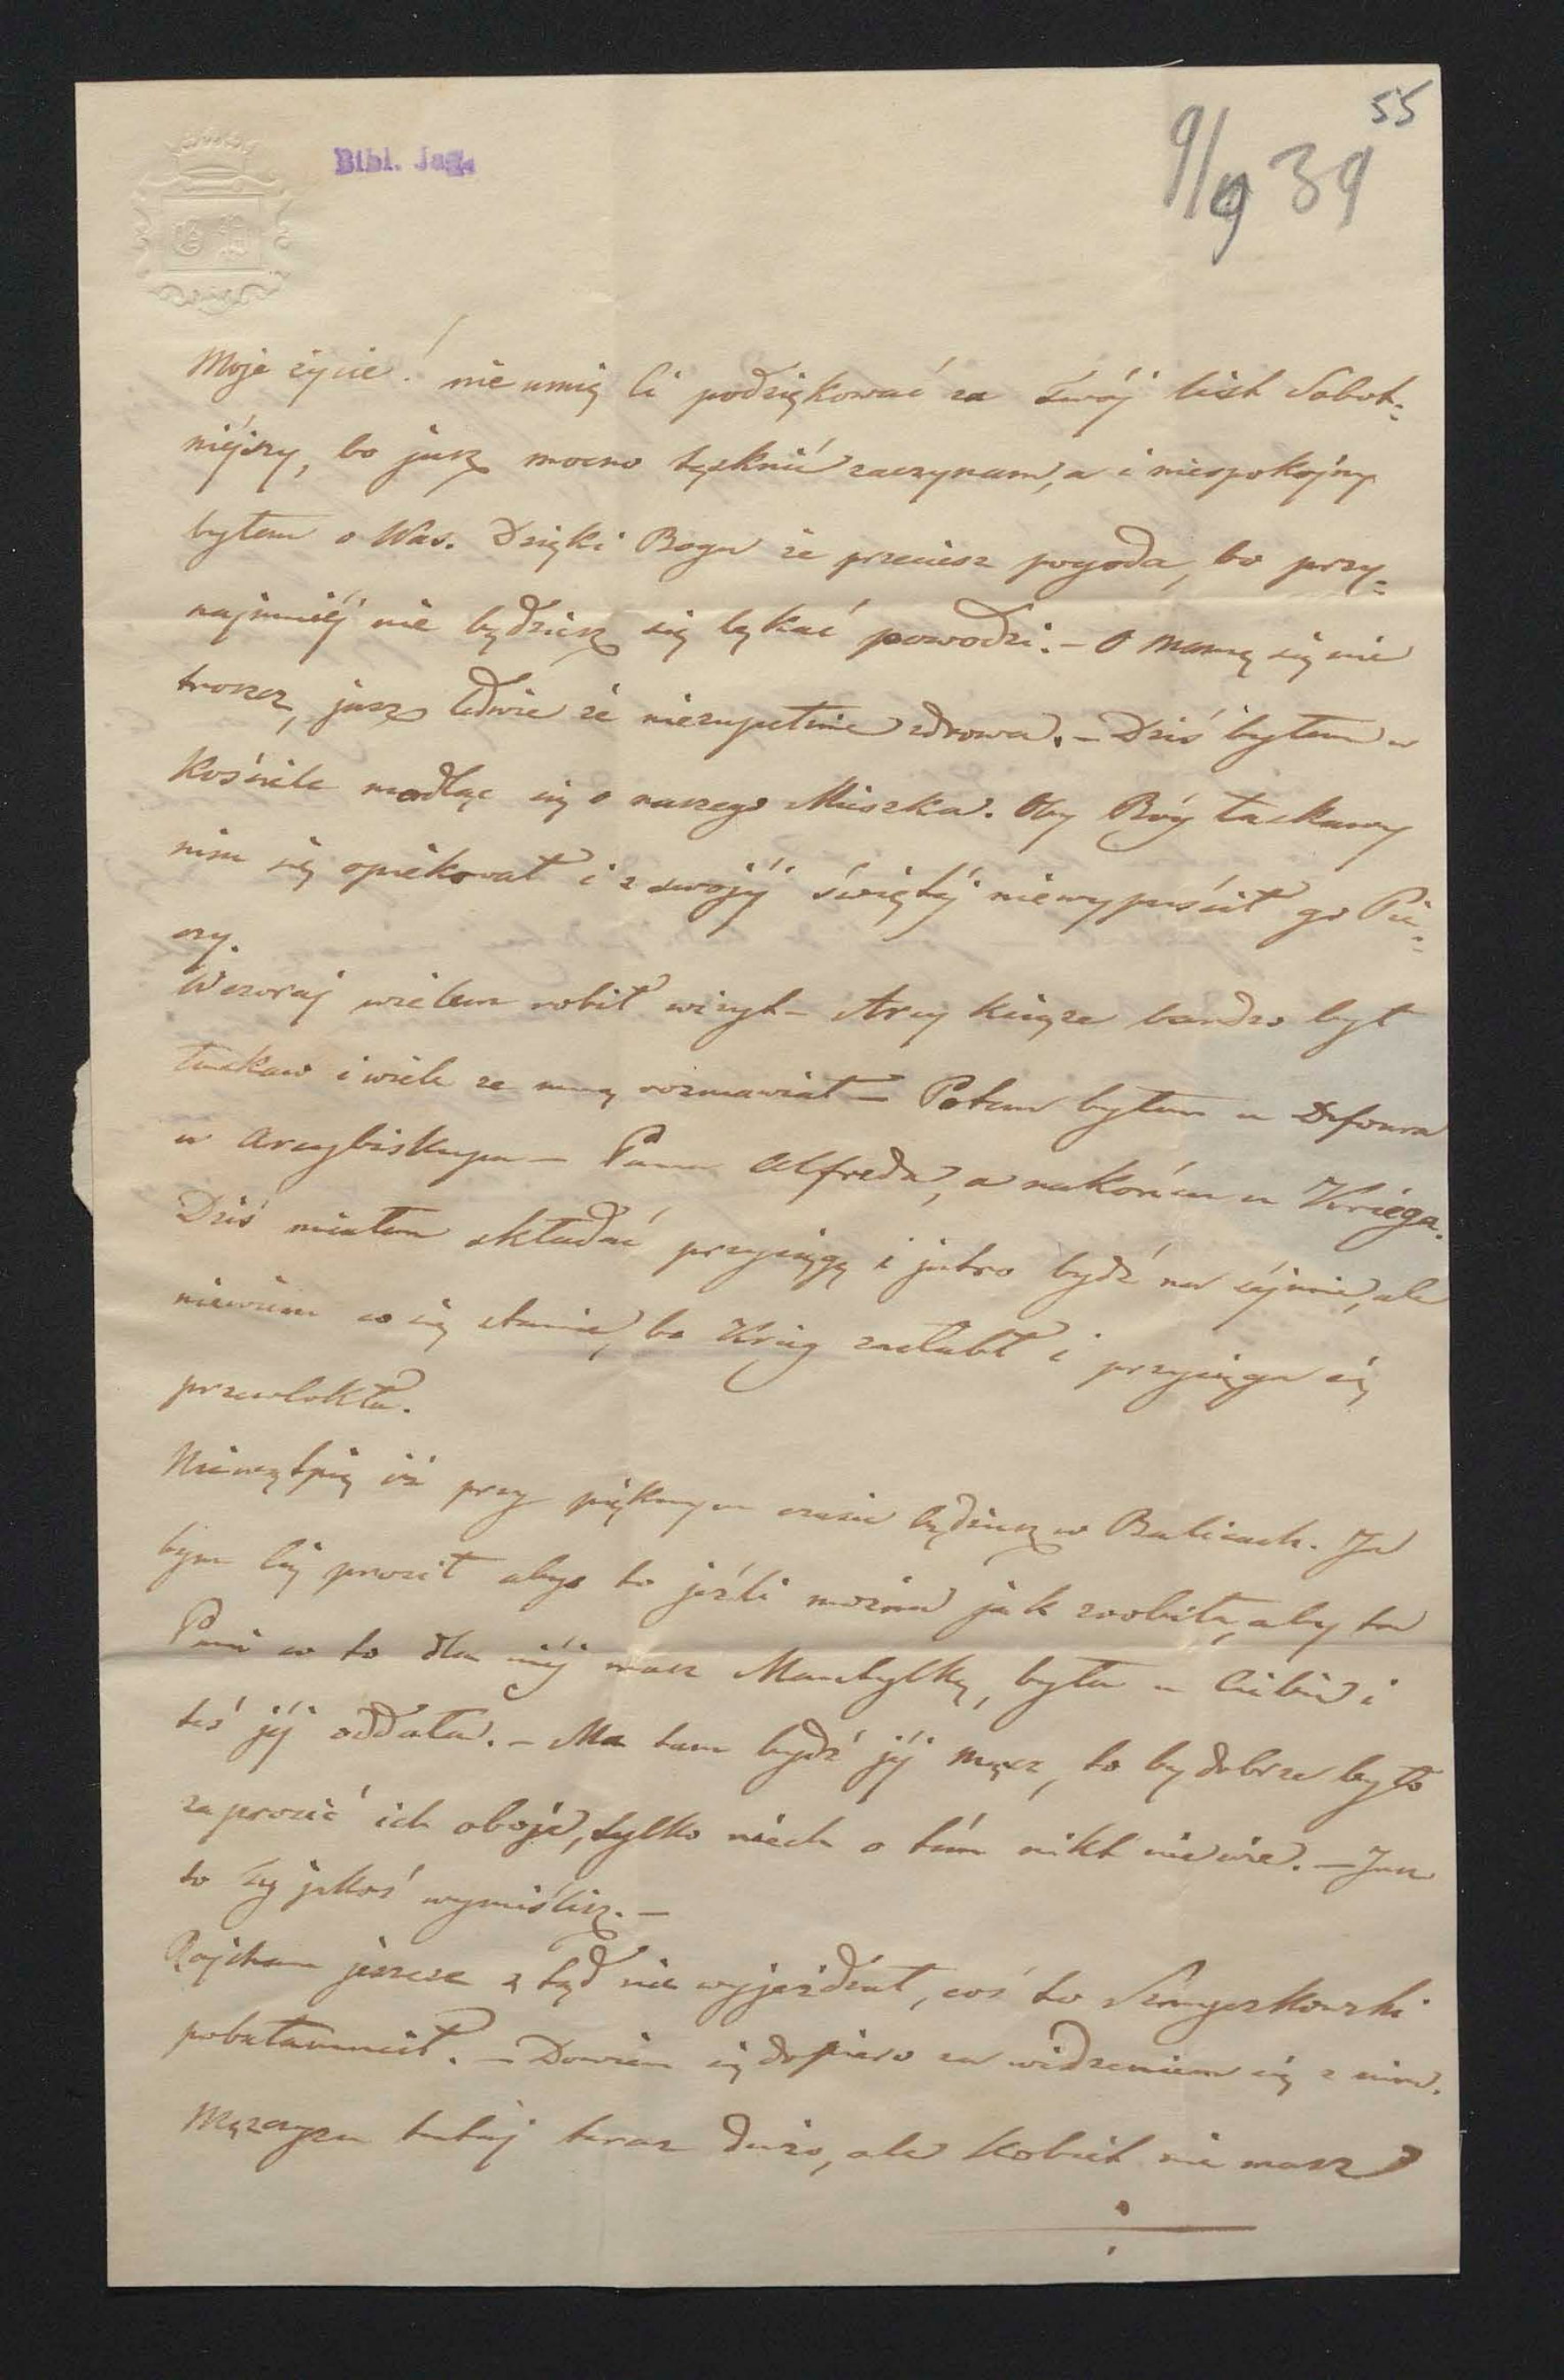 55
Bibl. Jag.
9/9 39
Moje życie! nie umię Ci podziękować za twój list Sobot=
niéjszy, bo jusz mocno tęsknić zaczynam, a i niespokojny
byłem o Was. Dzięki Bogu że przeciesz pogoda, bo przy=
najmniéj nie będziesz się lękać powodzi. – O Mamę się nie
troszcz, jusz ledwie że niezupełnie zdrowa. – Dziś byłem w
Kościele modląc się o naszego Miszka. Oby Bóg łaskawy
nim się opiekował i z swojéj świętéj niewypuścił go Pie=
czy.
Wczoraj wielem robił wizyt – Arcy Książe bardzo był
łaskaw i wiele ze mną rozmawiał – Potem byłem u Defoura
u Arcybiskupa – Pana Alfreda, a nakoniec u Kriéga.
Dziś miałem składać przysięgę i jutro bydź na séjmie, ale
niewiem co się stanie, bo Krieg zasłabł i przysięga się
przewlokła.
Niewątpię iż przy pięknym czasie będziesz w Balicach. Ja
bym Cię prosił abyś to jeźli można jak zrobiła, aby ta
Pani co to dla niéj masz Mantylkę, była u Ciebie i
téś jéj oddała. – Ma tam bydź jéj mąsz, to by dobrze było
zaprosić ich oboje, tylko niech o tém nikt nie wie. – Jusz
to Ty jakoś wymiślisz. –
Rajchan jeszcze z tąd nie wyjeżdżał, coś to
pobałamucił. – Dowiem się dopiero za widzeniem się z nim.
Męzczyzn tutaj teraz dużo, ale Kobiet nie masz